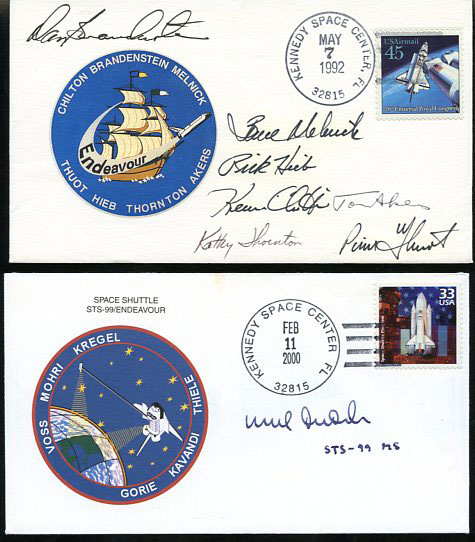 Dan Brandenstein
CHILTON BRANDENSTEIN MELNICK
Endeavour
THUOT HIEB THORNTON AKERS
KENNEDY SPACE CENTER, FL
MAY
7
1992
32815
USAirmail
45
20th Universal Postal Congress
Bruce Melnick
Rick Hieb
Kevin Chilton
Tom Akers
Kathy Thornton
Pierre Thuot
SPACE SHUTTLE
STS-99/ENDEAVOUR
VOSS MOHRI KREGEL THIELE
GORIE KAVANDI
KENNEDY SPACE CENTER FL
FEB
11
2000
32815
33
USA
STS-99 MS